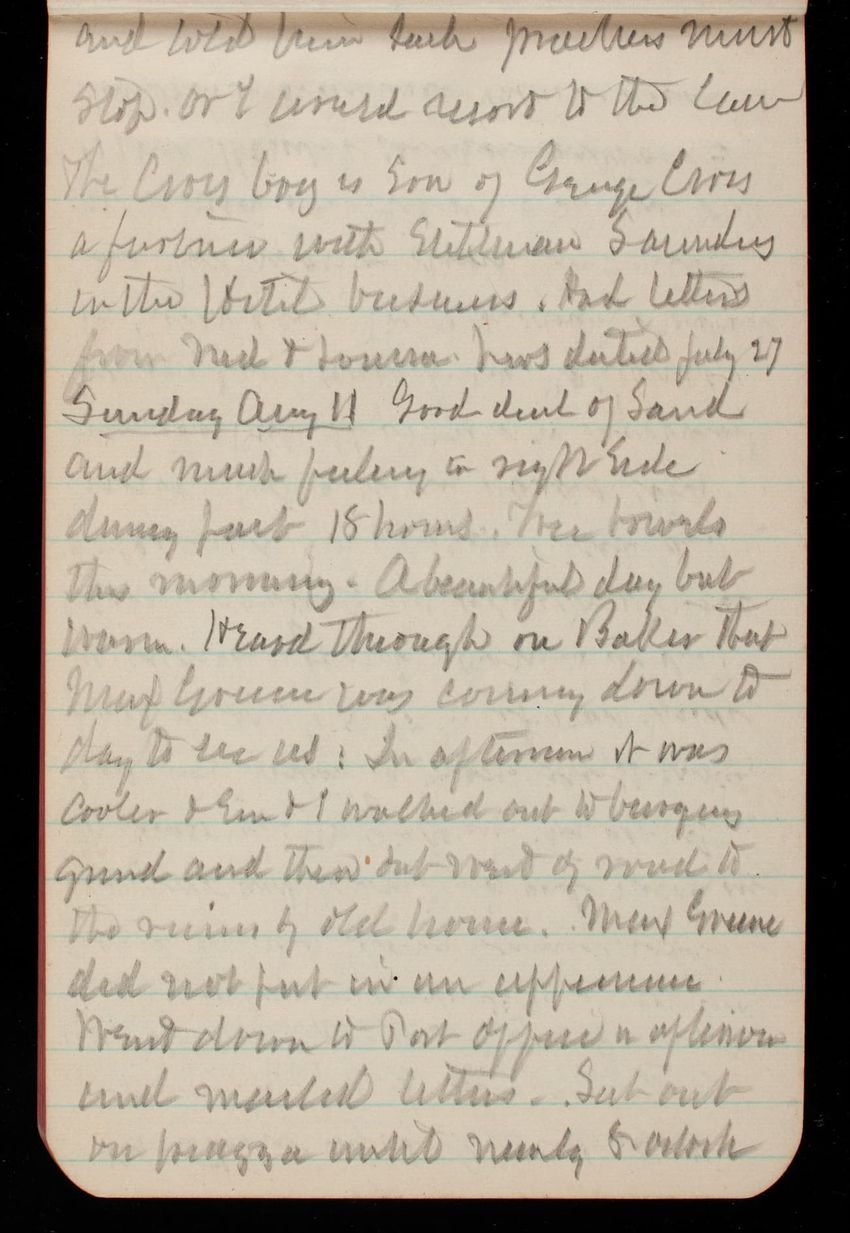 and told him such practices must
stop. or I would resort to the law
The Cross boy is son of George Cross
a partner with Stillman Saunders
in the Hotel business. Had letters
from Ned & Louisa. hers dated July 27
Sunday Aug 11 Good deal of Sand
and much feeling in right side
during past 18 hours. Free bowels
this morning. A beautiful day but
warm. Heard through on Baker that
Max Greene was coming down to
day to see us: In afternoon it was
cooler & Em & I walked out to burying
grund and then out west of road to
the ruins of old house. Max Greene
did not put in an appearance
Went down to Post office in afternoon
and mailed letters. Sat out
on piazza until nearly 8 oclock